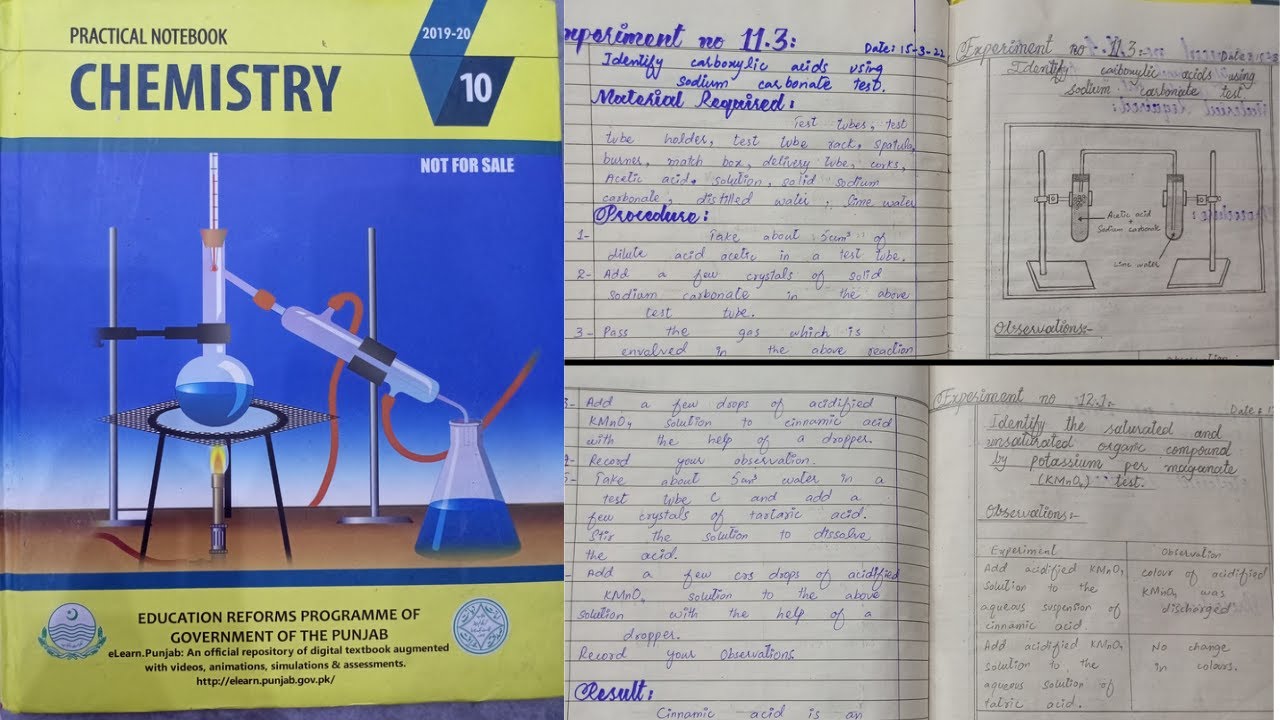 PRACTICAL NOTEBOOK
CHEMISTRY
2019-20
10
NOT FOR SALE
EDUCATION REFORMS PROGRAMME OF
GOVERNMENT OF THE PUNJAB
eLearn.Punjab: An official repository of digital textbook augmented
with videos, animations, simulations & assessments.
http://elearn.punjab.gov.pk/
xperiment no 11.3:
Date: 15-3-22
Identify carboxylic acids using
sodium carbonate test.
Material Required:
Test tubes, test
tube holder, test tube rack, spatula,
burner, match box, delivery tube, corks,
Acetic acid, solution, solid sodium
carbonate, distilled water, lime water
Procedure:
1- Take about 5cm³ of
dilute acid acetic in a test tube.
2- Add a few crystals of solid
sodium carbonate in the above
test tube.
3- Pass the gas which is
envolved in the above reaction
Experiment no 11.3:-
Date:
Identify carboxylic acids using
sodium carbonate test
Acetic acid
+
Sodium carbonate
Lime water
Observations:-
3- Add a few drops of acidified
KMnO4 solution to cinnamic acid
with the help of a dropper.
Record your observation.
Take about 5cm³ water in a
test tube C and add a
few crystals of tartaric acid.
Stir the solution to dissolve
the acid.
Add a few crs drops of acidified
KMnO4 solution to the above
solution with the help of a
dropper.
Record your observations
Result:
Cinnamic acid is an
Experiment no 12.1:
Date:
Identify the saturated and
unsaturated organic compound
by potassium per maganate
(KMnO4) test.
Observations:-
Experiment
Observation
Add acidified KMnO4
solution to the
aqueous suspension of
cinnamic acid.
colour of acidified
KMnO4 was
discharged
Add acidified KMnO4
solution to the
aqueous solution of
tatric acid.
No change
in colours.